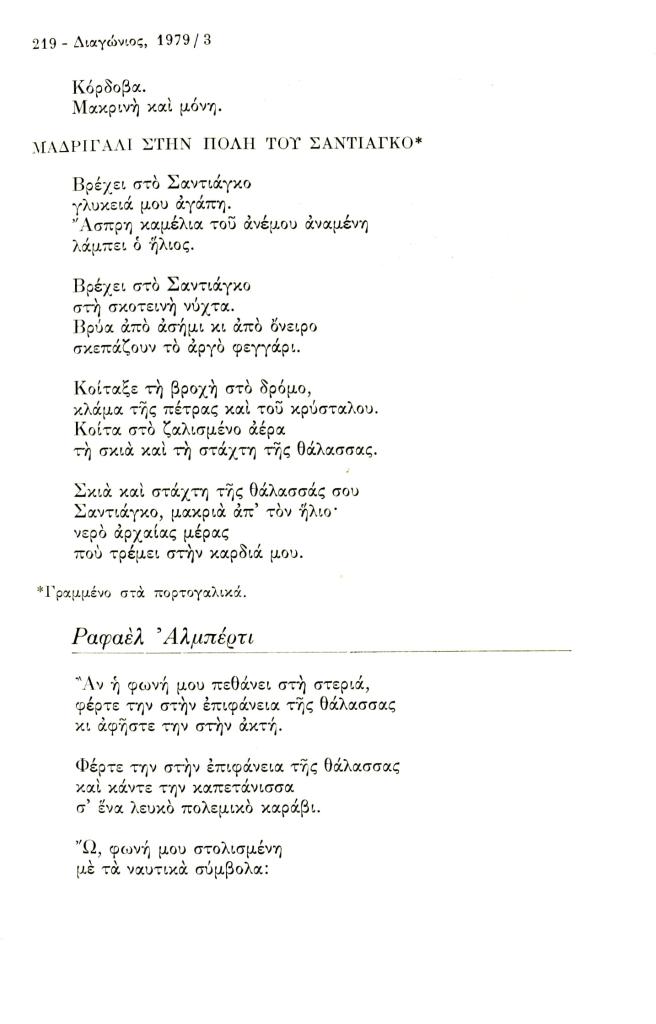 219 - Διαγώνιος, 1979 / 3
Κόρδοβα.
Μακρινὴ καὶ μόνη.
ΜΑΔΡΙΓΑΛΙ ΣΤΗΝ ΠΟΛΗ ΤΟΥ ΣΑΝΤΙΑΓΚΟ*
Βρέχει στὸ Σαντιάγκο
γλυκειά μου ἀγάπη.
Ἄσπρη καμέλια τοῦ ἀνέμου ἀναμένη
λάμπει ὁ ἥλιος.
Βρέχει στὸ Σαντιάγκο
στὴ σκοτεινὴ νύχτα.
Βρύα ἀπὸ ἀσήμι κι ἀπὸ ὄνειρο
σκεπάζουν τὸ ἀργὸ φεγγάρι.
Κοίταξε τὴ βροχὴ στὸ δρόμο,
κλάμα τῆς πέτρας καὶ τοῦ κρύσταλου.
Κοίτα στὸ ζαλισμένο ἀέρα
τὴ σκιὰ καὶ τὴ στάχτη τῆς θάλασσας.
Σκιὰ καὶ στάχτη τῆς θάλασσάς σου
Σαντιάγκο, μακριὰ ἀπ' τὸν ἥλιο·
νερὸ ἀρχαίας μέρας
ποὺ τρέμει στὴν καρδιά μου.
*Γραμμένο στὰ πορτογαλικά.
Ραφαὲλ Ἀλμπέρτι
Ἂν ἡ φωνή μου πεθάνει στὴ στεριά,
φέρτε την στὴν ἐπιφάνεια τῆς θάλασσας
κι ἀφῆστε την στὴν ἀκτή.
Φέρτε την στὴν ἐπιφάνεια τῆς θάλασσας
καὶ κάντε την καπετάνισσα
σ' ἕνα λευκὸ πολεμικὸ καράβι.
Ὤ, φωνή μου στολισμένη
μὲ τὰ ναυτικὰ σύμβολα: